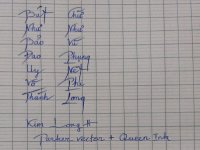 Bút Chữ
Như Như
Bảo Vũ
Đào Phụng
Uy Nét
Võ Phi
Thành Long
Kim Long
Parker vector + Queen Ink